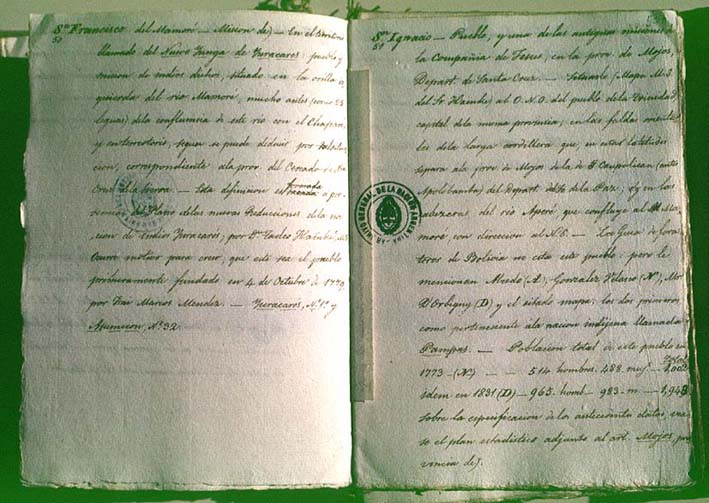 Sn Francisco del Mamoré - Mision de) - En el territorio
52
llamado del Nuevo Yunga de Yuracares, pueblo y
mision de indios dichos, situado en la orilla iz
quierda del rio Mamoré, mucho antes (como 25
leguas) de la confluencia de este rio con el Chapare,
y en territorio, segun se puede deducir por
cion, correspondiente á la prov. del Cercado de Sta
Cruz de la Sierra. - Esta definicion es
sencia del Plano de las nuevas Reducciones de la na-
cion de Indios Yuracares, por Dn Tadeo Haënke,
Ocurre motivo para creer, que este sea el pueblo
primeramente fundado en 4 de Octubre de 1779
por Fray Marcos Mendez. - Yuracares, N. 1º y
Asumcion, Nº 32.
Sn Ignacio - Pueblo, y una de las antiguas misiones de
51
la Compañia de Jesus, en la prov. de Mojos,
Depart. de Santa Cruz. - Situado (Mapa M.S.
del Sr Haenke) al O.N.O. del pueblo de la Trinidad
capital de la misma provincia, en las faldas orienta
les de la larga cordillera que, en estas latitudes
separa á la prov. de Mojos de la de Caupolican (antes
Apolobamba) del Depart. de la Paz; y en las
cabezeras del rio Aperé que confluye al Ma-
moré, con direccion al N.E. - La Guia de foras
teros de Bolivia no cita este pueblo; pero le
mencionan Alcedo (A), Gonzalez Velasco (N), Mr
D'Orbigny (D) y el citado mapa; los dos primeros
como perteneciente á la nacion indigena llamada
Pampas. - Poblacion total de este pueblo en
Total
1773 - (N) - - 514 hombres. 488 muj. - 1,002
idem en 1831 (D) - 965. homb. 983. m - 1,948
Sobre la especificacion de los antecedentes datos, vea
se el plan estadistico adjunto al art. Mojos, pro
vincia de).
ARCHIVO GENERAL DE LA NACION ARGENTINA